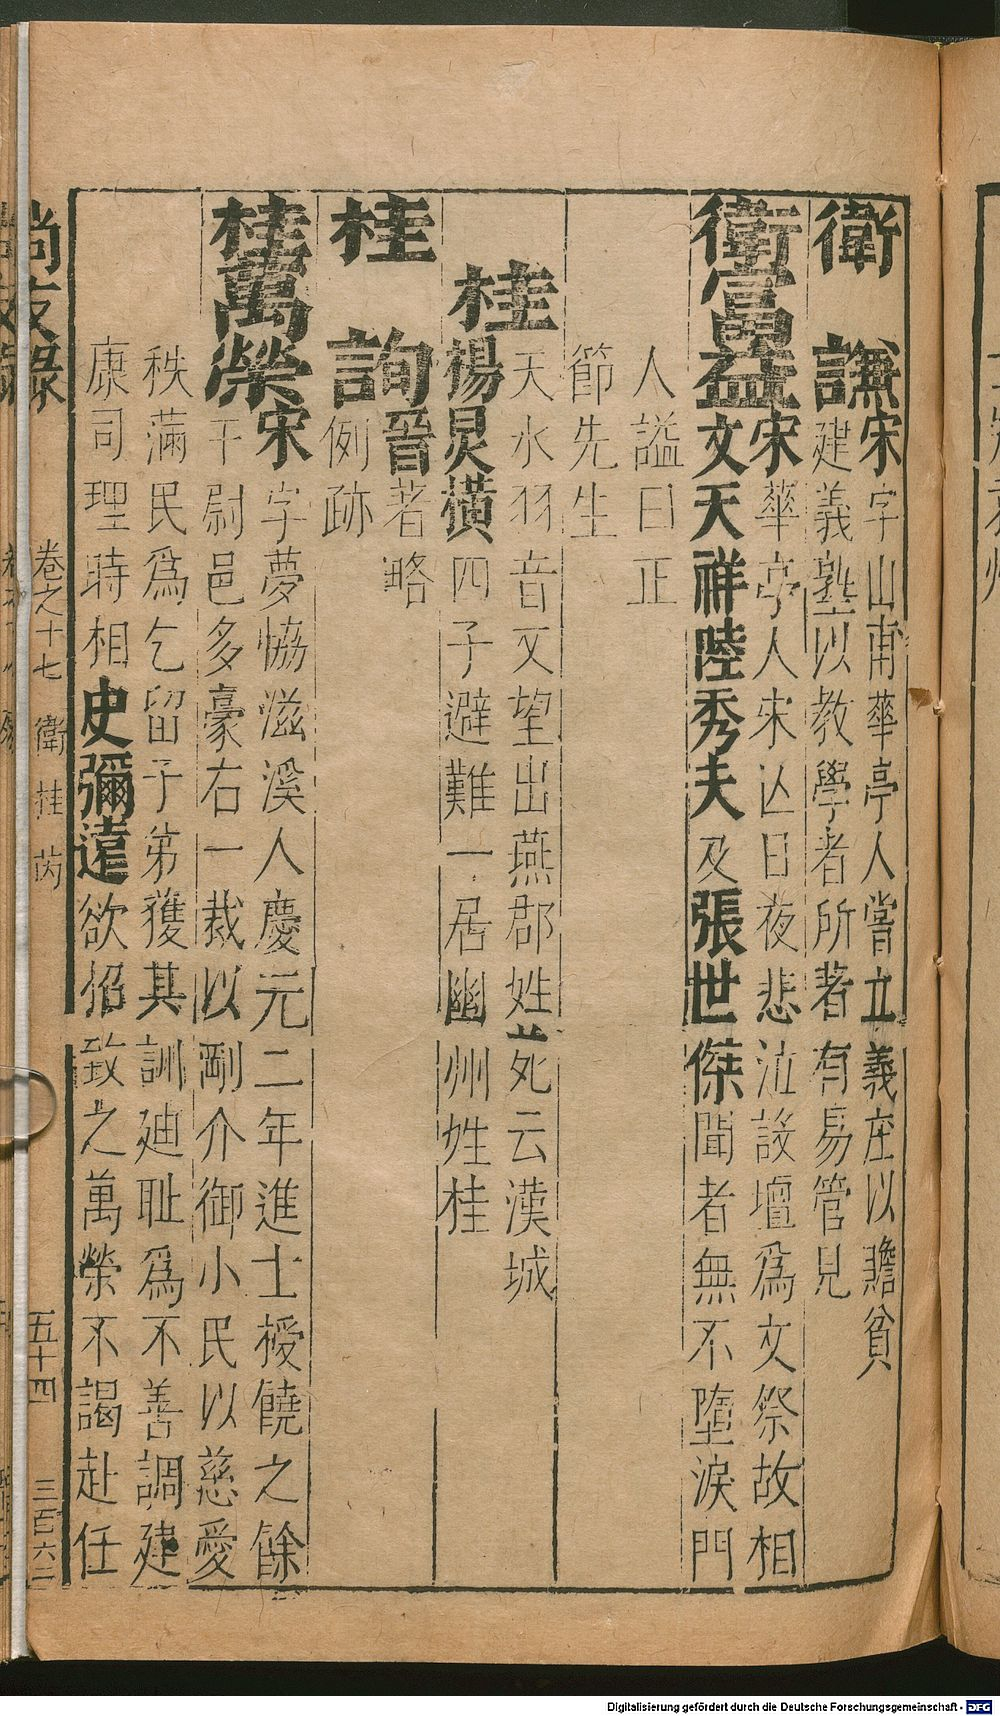 衛　謙宋字山甫華亭人嘗立義庄以贍貧
建義塾以教學者所著有易管見
衛富益宋華亭人宋亾日夜悲泣設壇爲文祭故相
文天祥陸秀夫及張世傑聞者無不墮淚門
人謚曰正
節先生
桂
天水羽音又望出燕郡姓苑云漢城
楊炅橫四子避難一居幽州姓桂
桂　詢晉著略
例跡
桂萬榮宋字夢協滋溪人慶元二年進士授饒之餘
干尉邑多豪右一裁以剛介御小民以慈愛
秩滿民爲乞留子弟獲其訓廸耻爲不善調建
康司理時相史彌遠欲招致之萬榮不謁赴任
尚友錄　卷之十七　衛桂芮　五十四　三百六二
Digitalisierung gefördert durch die Deutsche Forschungsgemeinschaft - DFG